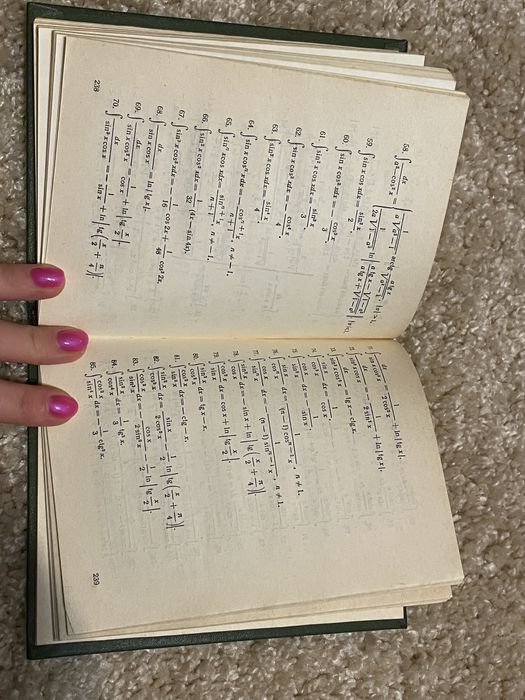 58. ∫ dx / (a² − cos² x) = { 1 / (a√(a² − 1)) arctg (a tg x / √(a² − 1)), |a| > 1,
1 / (2a√(1 − a²)) ln | (a tg x − √(1 − a²)) / (a tg x + √(1 − a²)) |, |a| < 1.
59. ∫ sin x cos x dx = sin² x / 2.
60. ∫ sin x cos² x dx = − cos³ x / 3.
61. ∫ sin² x cos x dx = sin³ x / 3.
62. ∫ sin x cos³ x dx = − cos⁴ x / 4.
63. ∫ sin³ x cos x dx = sin⁴ x / 4.
64. ∫ sin x cosⁿ x dx = − cosⁿ⁺¹ x / (n + 1), n ≠ −1.
65. ∫ sinⁿ x cos x dx = sinⁿ⁺¹ x / (n + 1), n ≠ −1.
66. ∫ sin² x cos² x dx = 1/32 (4x − sin 4x).
67. ∫ sin³ x cos³ x dx = − 1/16 cos 2x + 1/48 cos³ 2x.
68. ∫ dx / (sin x cos x) = ln | tg x |.
69. ∫ dx / (sin x cos² x) = 1 / cos x + ln | tg x/2 |.
70. ∫ dx / (sin² x cos x) = − 1 / sin x + ln | tg (x/2 + π/4) |.
238
71. ∫ dx / (sin x cos³ x) = 1 / (2 cos² x) + ln | tg x |.
72. ∫ dx / (sin³ x cos x) = − 1 / (2 sin² x) + ln | tg x |.
73. ∫ dx / (sin² x cos² x) = tg x − ctg x.
74. ∫ sin x / cos² x dx = 1 / cos x.
75. ∫ cos x / sin² x dx = − 1 / sin x.
76. ∫ sin x / cosⁿ x dx = 1 / ((n − 1) cosⁿ⁻¹ x), n ≠ 1.
77. ∫ cos x / sinⁿ x dx = − 1 / ((n − 1) sinⁿ⁻¹ x), n ≠ 1.
78. ∫ sin² x / cos x dx = − sin x + ln | tg (x/2 + π/4) |.
79. ∫ cos² x / sin x dx = cos x + ln | tg x/2 |.
80. ∫ sin² x / cos² x dx = tg x − x.
81. ∫ cos² x / sin² x dx = − ctg x − x.
82. ∫ sin² x / cos³ x dx = sin x / (2 cos² x) − 1/2 ln | tg (x/2 + π/4) |.
83. ∫ cos² x / sin³ x dx = − cos x / (2 sin² x) − 1/2 ln | tg x/2 |.
84. ∫ sin² x / cos⁴ x dx = 1/3 tg³ x.
85. ∫ cos² x / sin⁴ x dx = − 1/3 ctg³ x.
239